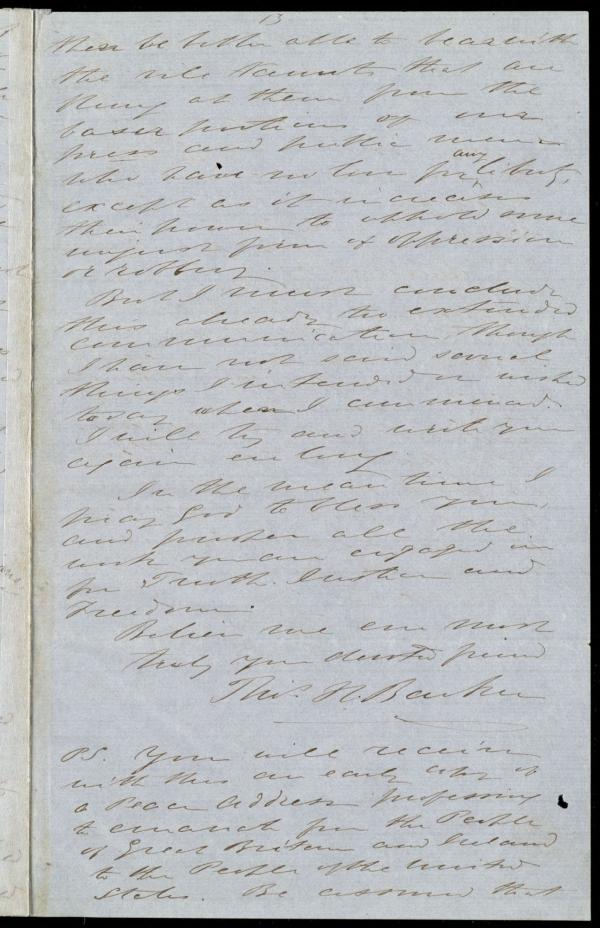 13
then be better able to bear with
the vile taunts that are
flung at them from the
baser portions of our
press and public men
who have no love for any liberty,
except as it increases
their power to uphold some
unjust form of oppression
or robbery.
But I must conclude
this already too extended
communication, though
I have not said several
things I intended or wished
to say when I commenced.
I will try and write you
again early.
In the mean time I
pray God to bless you,
and prosper all the
work you are engaged in
for Truth. Justice and
Freedom.
Believe me ever most
truly your devoted friend
Thos. H. Barker
PS. You will receive
with this an early copy of
a Peace Address professing
to emanate from the People
of Great Britain and Ireland
to the People of the United
States. Be assured that